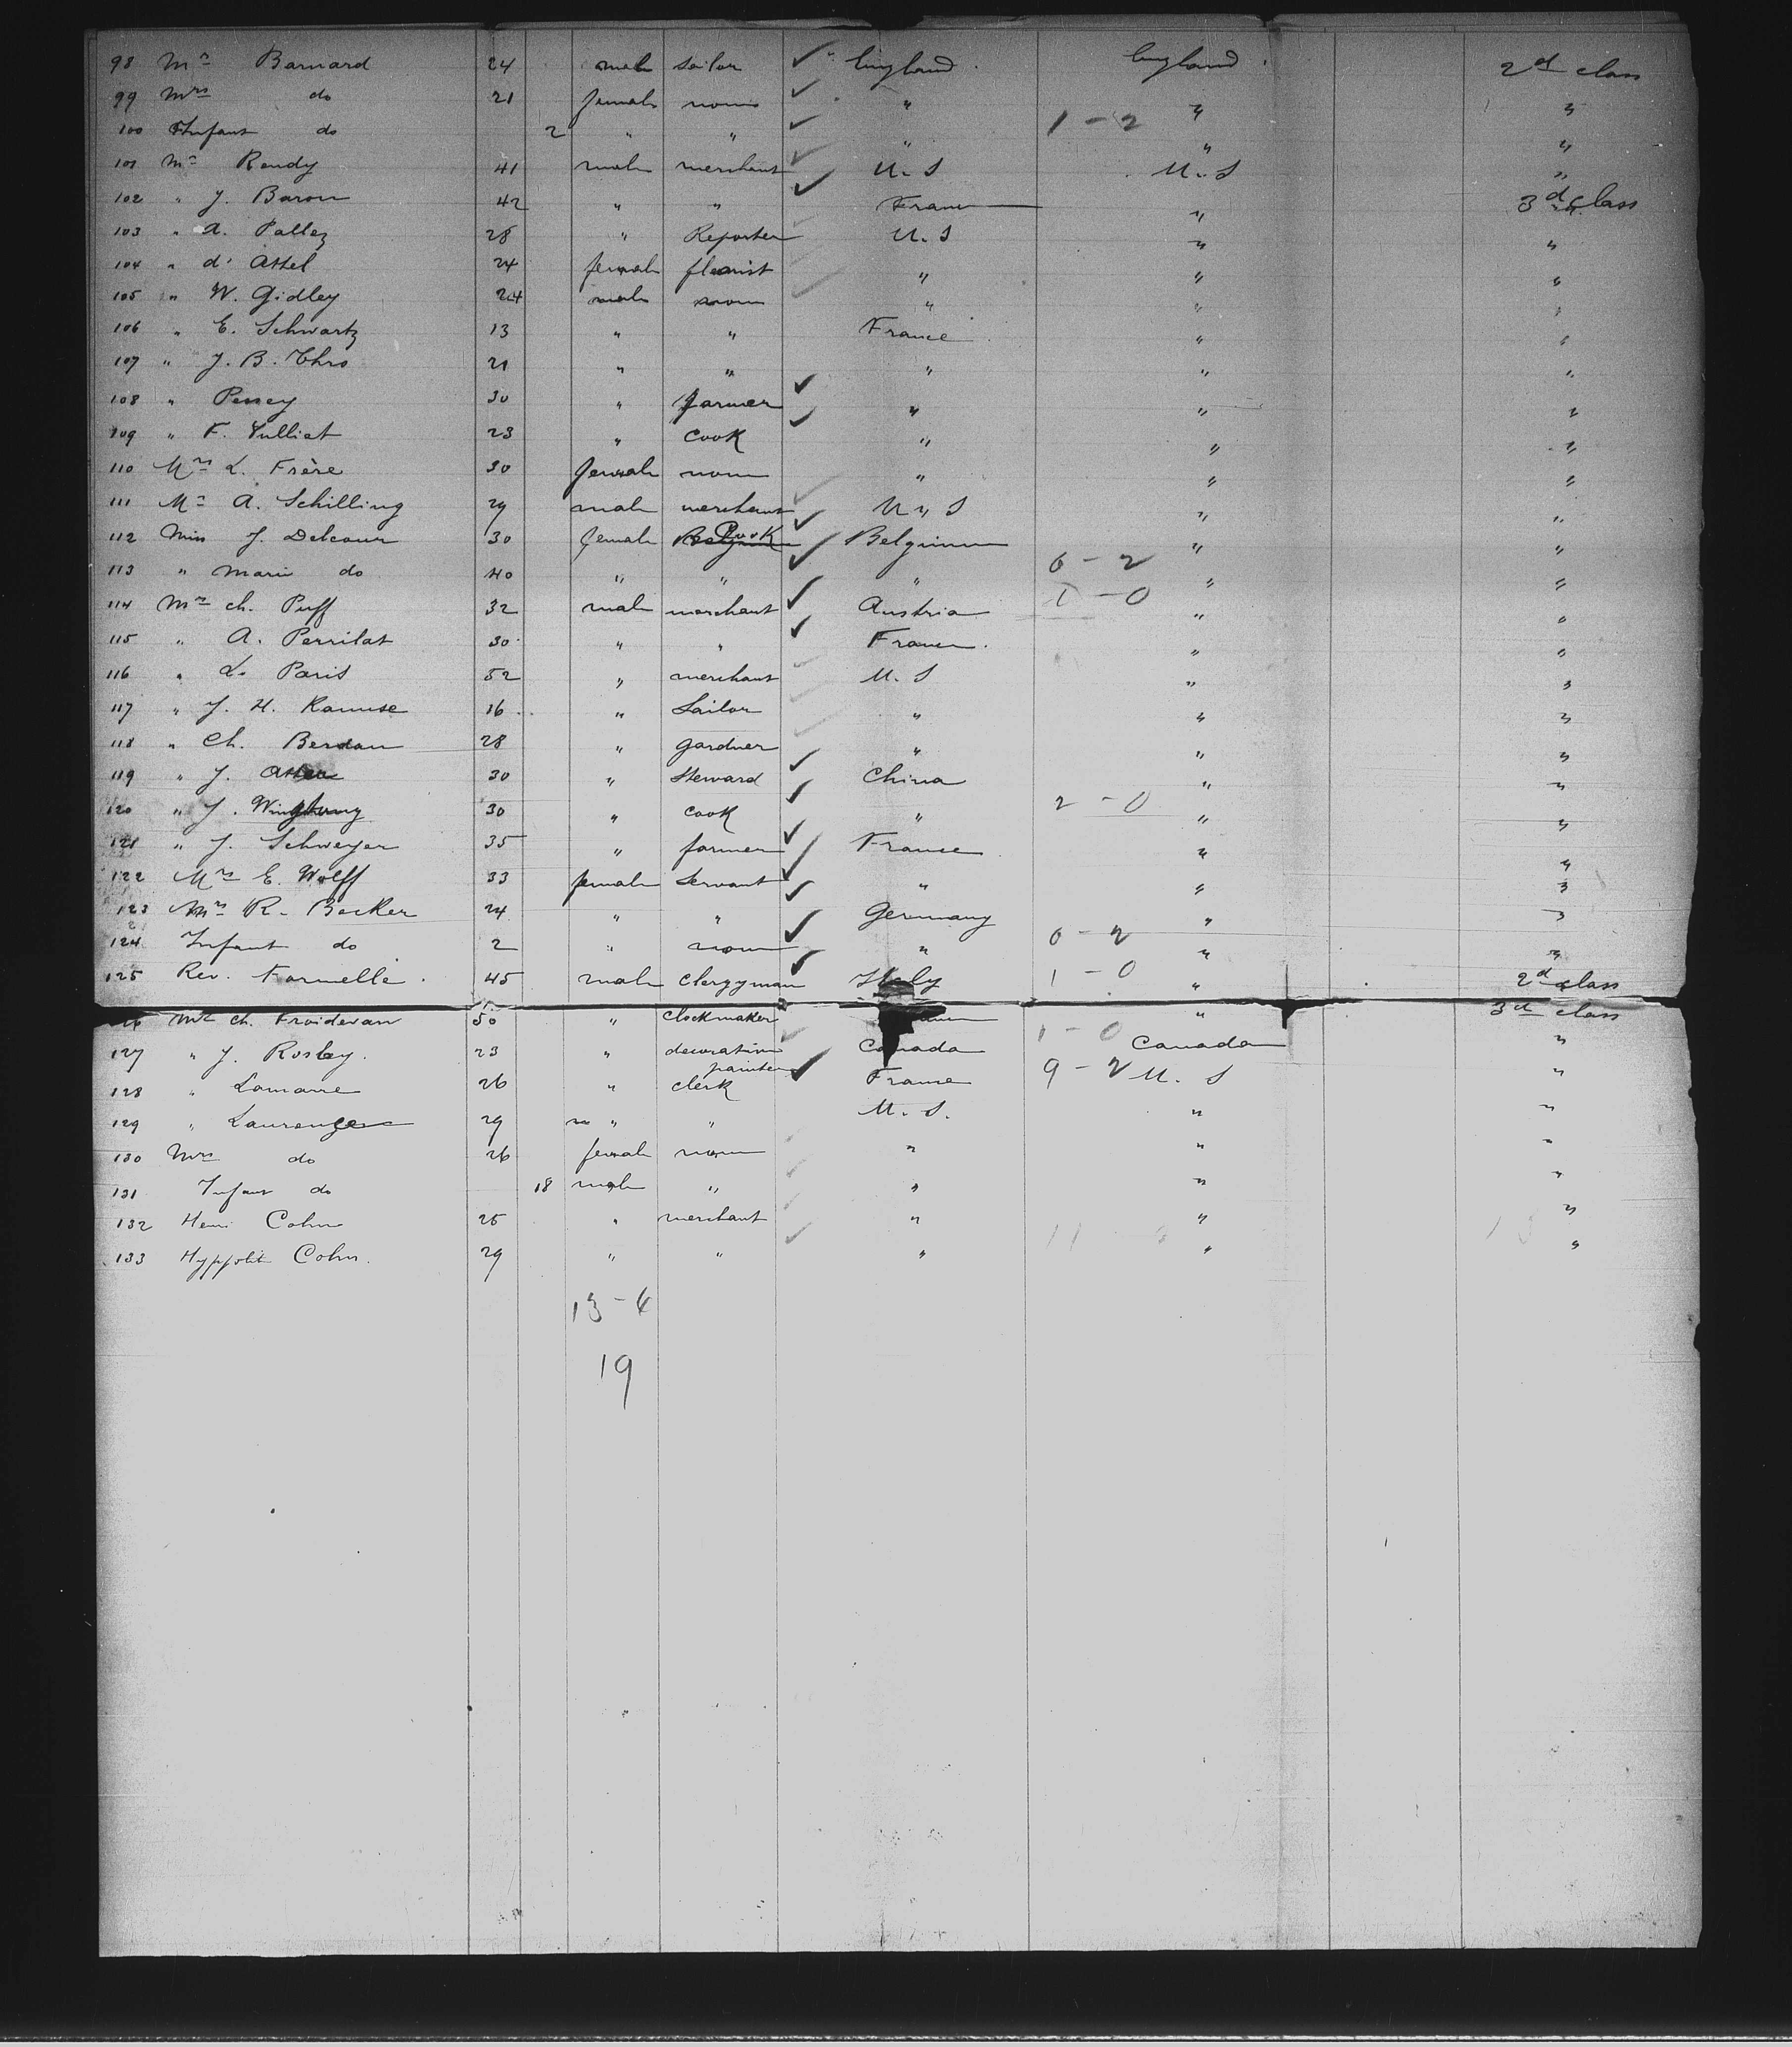 98 Mr Barnard 24 male sailor ✓ " England England 2d class
99 Mrs do 21 female none ✓ " " "
100 Infant do 2 " " ✓ " 1-2 " "
101 Mr Rendy 41 male merchant ✓ U.S U.S "
102 " J. Baron 42 " " ✓ France " 3d class
103 " A. Pallez 28 " Reporter U.S " "
104 " d' Attel 24 female florist " " "
105 " W. Gidley 24 male none " " "
106 " E. Schwartz 13 " " France " "
107 " J. B. Thro 21 " " " " "
108 " Perrey 30 " farmer ✓ " " "
109 " F. Vulliet 23 " cook ✓ " " "
110 Mrs L. Frère 30 female none " " "
111 Mr A. Schilling 29 male merchant ✓ U.S " "
112 Miss J. Delcour 30 female Cook ✓ Belgium " "
113 " Marie do 40 " " ✓ " 0-2 " "
114 Mr ch. Puff 32 male merchant ✓ Austria 1-0 " "
115 " A. Perrilat 30 " " ✓ France " "
116 " L. Paris 52 " merchant U.S " "
117 " J. H. 16 " Sailor " " "
118 " Ch. Berdau 28 " gardner " " "
119 " J. 30 " Steward ✓ China " "
120 " J. 30 " cook ✓ " 2-0 " "
121 " J. Schweyer 35 " farmer ✓ France " "
122 Mrs E. Wolff 33 female Servant ✓ " " "
123 Mrs R. Becker 24 " " ✓ Germany " "
124 Infant do 2 " none ✓ " 0-2 " "
125 Rev. Formelle 45 male clergyman ✓ Italy 1-0 " 2d class
Mr ch. Froidevau 50 " clockmaker " 3d class
127 " J. Rosley. 23 " decoration painter Canada 1-0 Canada "
128 " Lamarre 26 " clerk ✓ France 9-2 U.S "
129 " 29 " " U.S. " "
130 Mrs do 26 female none " " "
131 Infant do 18 male " " " "
132 Henri Cohn 25 " merchant " " "
133 Hyppolit Cohn. 29 " " " 11 " "
13-4
19